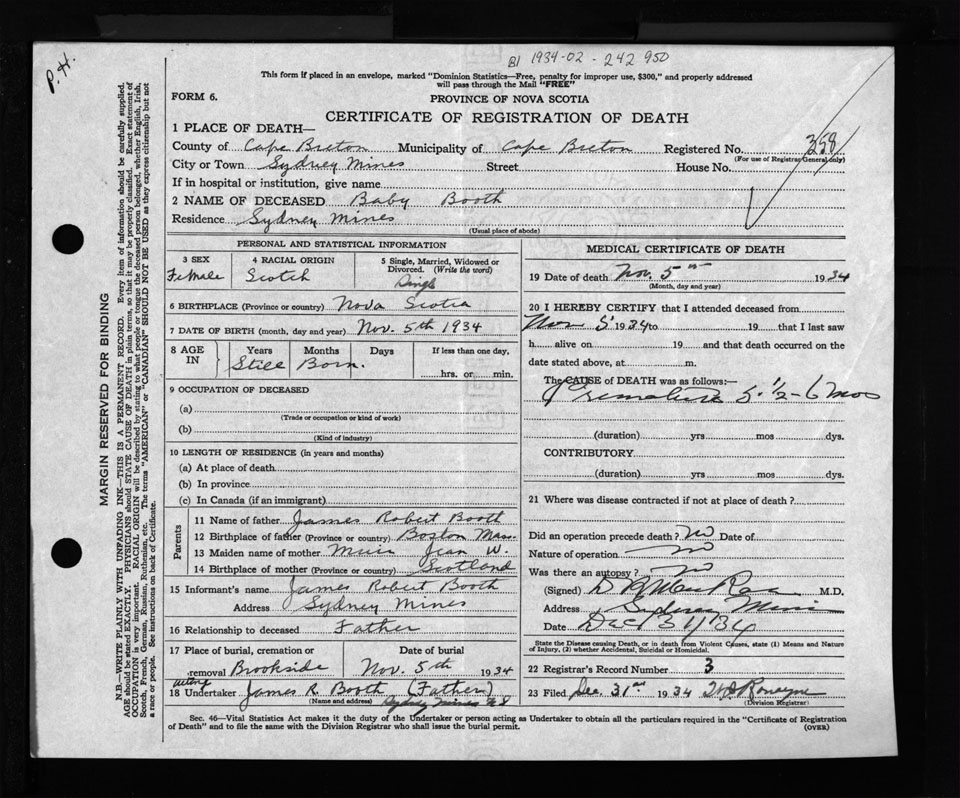 P.H.
B1 1934-02-242 950
This form if placed in an envelope, marked "Dominion Statistics—Free, penalty for improper use, $300," and properly addressed
will pass through the Mail "FREE"
FORM 6.
PROVINCE OF NOVA SCOTIA
CERTIFICATE OF REGISTRATION OF DEATH
1 PLACE OF DEATH—
County of Cape Breton Municipality of Cape Breton Registered No. 258
(For use of Registrar General only)
City or Town Sydney Mines Street House No.
If in hospital or institution, give name
2 NAME OF DECEASED Baby Booth
Residence Sydney Mines
(Usual place of abode)
PERSONAL AND STATISTICAL INFORMATION
3 SEX 4 RACIAL ORIGIN 5 Single, Married, Widowed or
Divorced. (Write the word)
Female Scotch Single
6 BIRTHPLACE (Province or country) Nova Scotia
7 DATE OF BIRTH (month, day and year) Nov. 5th 1934
8 AGE IN Years Months Days If less than one day,
Still Born. hrs. or min.
9 OCCUPATION OF DECEASED
(a)
(Trade or occupation or kind of work)
(b)
(Kind of industry)
10 LENGTH OF RESIDENCE (in years and months)
(a) At place of death
(b) In province
(c) In Canada (if an immigrant)
Parents
11 Name of father James Robert Booth
12 Birthplace of father (Province or country) Boston Mass.
13 Maiden name of mother Muir Jean W.
14 Birthplace of mother (Province or country) Scotland
15 Informant's name James Robert Booth
Address Sydney Mines
16 Relationship to deceased Father
17 Place of burial, cremation or Date of burial
removal Brookside Nov. 5th 1934
acting
18 Undertaker James R. Booth (Father)
(Name and address) Sydney Mines N S
MEDICAL CERTIFICATE OF DEATH
19 Date of death Nov. 5th 1934
(Month, day and year)
20 I HEREBY CERTIFY that I attended deceased from
Nov 5 1934 to 19 that I last saw
h alive on 19 and that death occurred on the
date stated above, at m.
The CAUSE of DEATH was as follows:—
Premature 5 1/2-6 mos
(duration) yrs mos dys.
CONTRIBUTORY
(duration) yrs mos dys.
21 Where was disease contracted if not at place of death?
Did an operation precede death? no Date of
Nature of operation no
Was there an autopsy? no
(Signed) M.D.
Address Sydney Mines
Date Dec 31/34
State the Disease causing Death, or in death from Violent Causes, state (1) Means and Nature
of Injury, (2) whether Accidental, Suicidal or Homicidal.
22 Registrar's Record Number 3
23 Filed Dec. 31st 1934
(Division Registrar)
Sec. 46—Vital Statistics Act makes it the duty of the Undertaker or person acting as Undertaker to obtain all the particulars required in the "Certificate of Registration
of Death" and to file the same with the Division Registrar who shall issue the burial permit. (OVER)
MARGIN RESERVED FOR BINDING
N.B.—WRITE PLAINLY WITH UNFADING INK—THIS IS A PERMANENT RECORD. Every item of information should be carefully supplied.
AGE should be stated EXACTLY. PHYSICIANS should STATE CAUSE OF DEATH in plain terms, so that it may be properly classified. Exact statement of
OCCUPATION is very important. RACIAL ORIGIN will be described by stating to what people or tongue the deceased person belonged, whether English, Irish,
Scotch, French, German, Russian, Ruthenian, etc. The terms "AMERICAN" or "CANADIAN" SHOULD NOT BE USED as they express citizenship but not
a race or people. See instructions on back of Certificate.